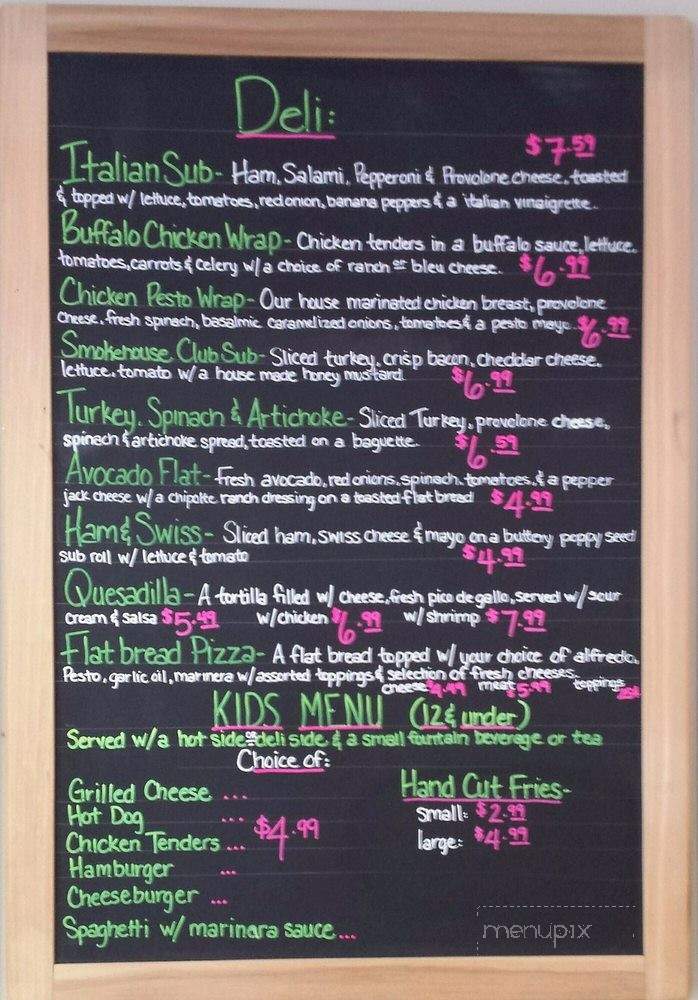 Deli:
$7.59
Italian Sub - Ham, Salami, Pepperoni & Provolone cheese, toasted
& topped w/ lettuce, tomatoes, red onion, banana peppers & a italian vinaigrette.
Buffalo Chicken Wrap - Chicken tenders in a buffalo sauce, lettuce,
tomatoes, carrots & celery w/ a choice of ranch or bleu cheese. $6.99
Chicken Pesto Wrap - Our house marinated chicken breast, provolone
cheese, fresh spinach, basalmic caramelized onions, tomatoes & a pesto mayo. $6.99
Smokehouse Club Sub - Sliced turkey, crisp bacon, cheddar cheese,
lettuce, tomato w/ a house made honey mustard. $6.99
Turkey, Spinach & Artichoke - Sliced Turkey, provolone cheese,
spinach & artichoke spread, toasted on a baguette. $6.59
Avocado Flat - Fresh avocado, red onions, spinach, tomatoes, & a pepper
jack cheese w/ a chipolte ranch dressing on a toasted flat bread $4.99
Ham & Swiss - Sliced ham, swiss cheese & mayo on a buttery poppy seed
sub roll w/ lettuce & tomato $4.99
Quesadilla - A tortilla filled w/ cheese, fresh pico de gallo, served w/ sour
cream & salsa $5.49 w/chicken $6.99 w/ shrimp $7.99
Flat bread Pizza - A flat bread topped w/ your choice of alfredo,
Pesto, garlic oil, marinera w/ assorted toppings & selection of fresh cheeses.
cheese $4.49 meat $5.99 toppings
KIDS MENU (12 & under)
Served w/ a hot side or deli side & a small fountain beverage or tea
Choice of:
Grilled Cheese ...
Hot Dog ...
Chicken Tenders ... $4.99
Hamburger ...
Cheeseburger ...
Spaghetti w/ marinara sauce ...
Hand Cut Fries -
small: $2.99
large: $4.99
menupix